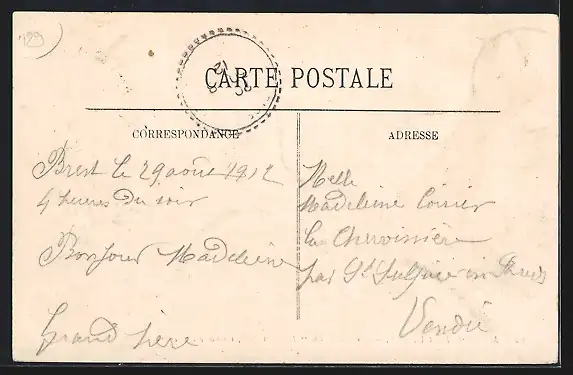 189
CARTE POSTALE
CORRESPONDANCE
ADRESSE
Brest le 29 août 1912
4 heures du soir
Bonjour Madeleine
Grand père
Melle
Madeleine
la
par St Sulpice en
Vendée